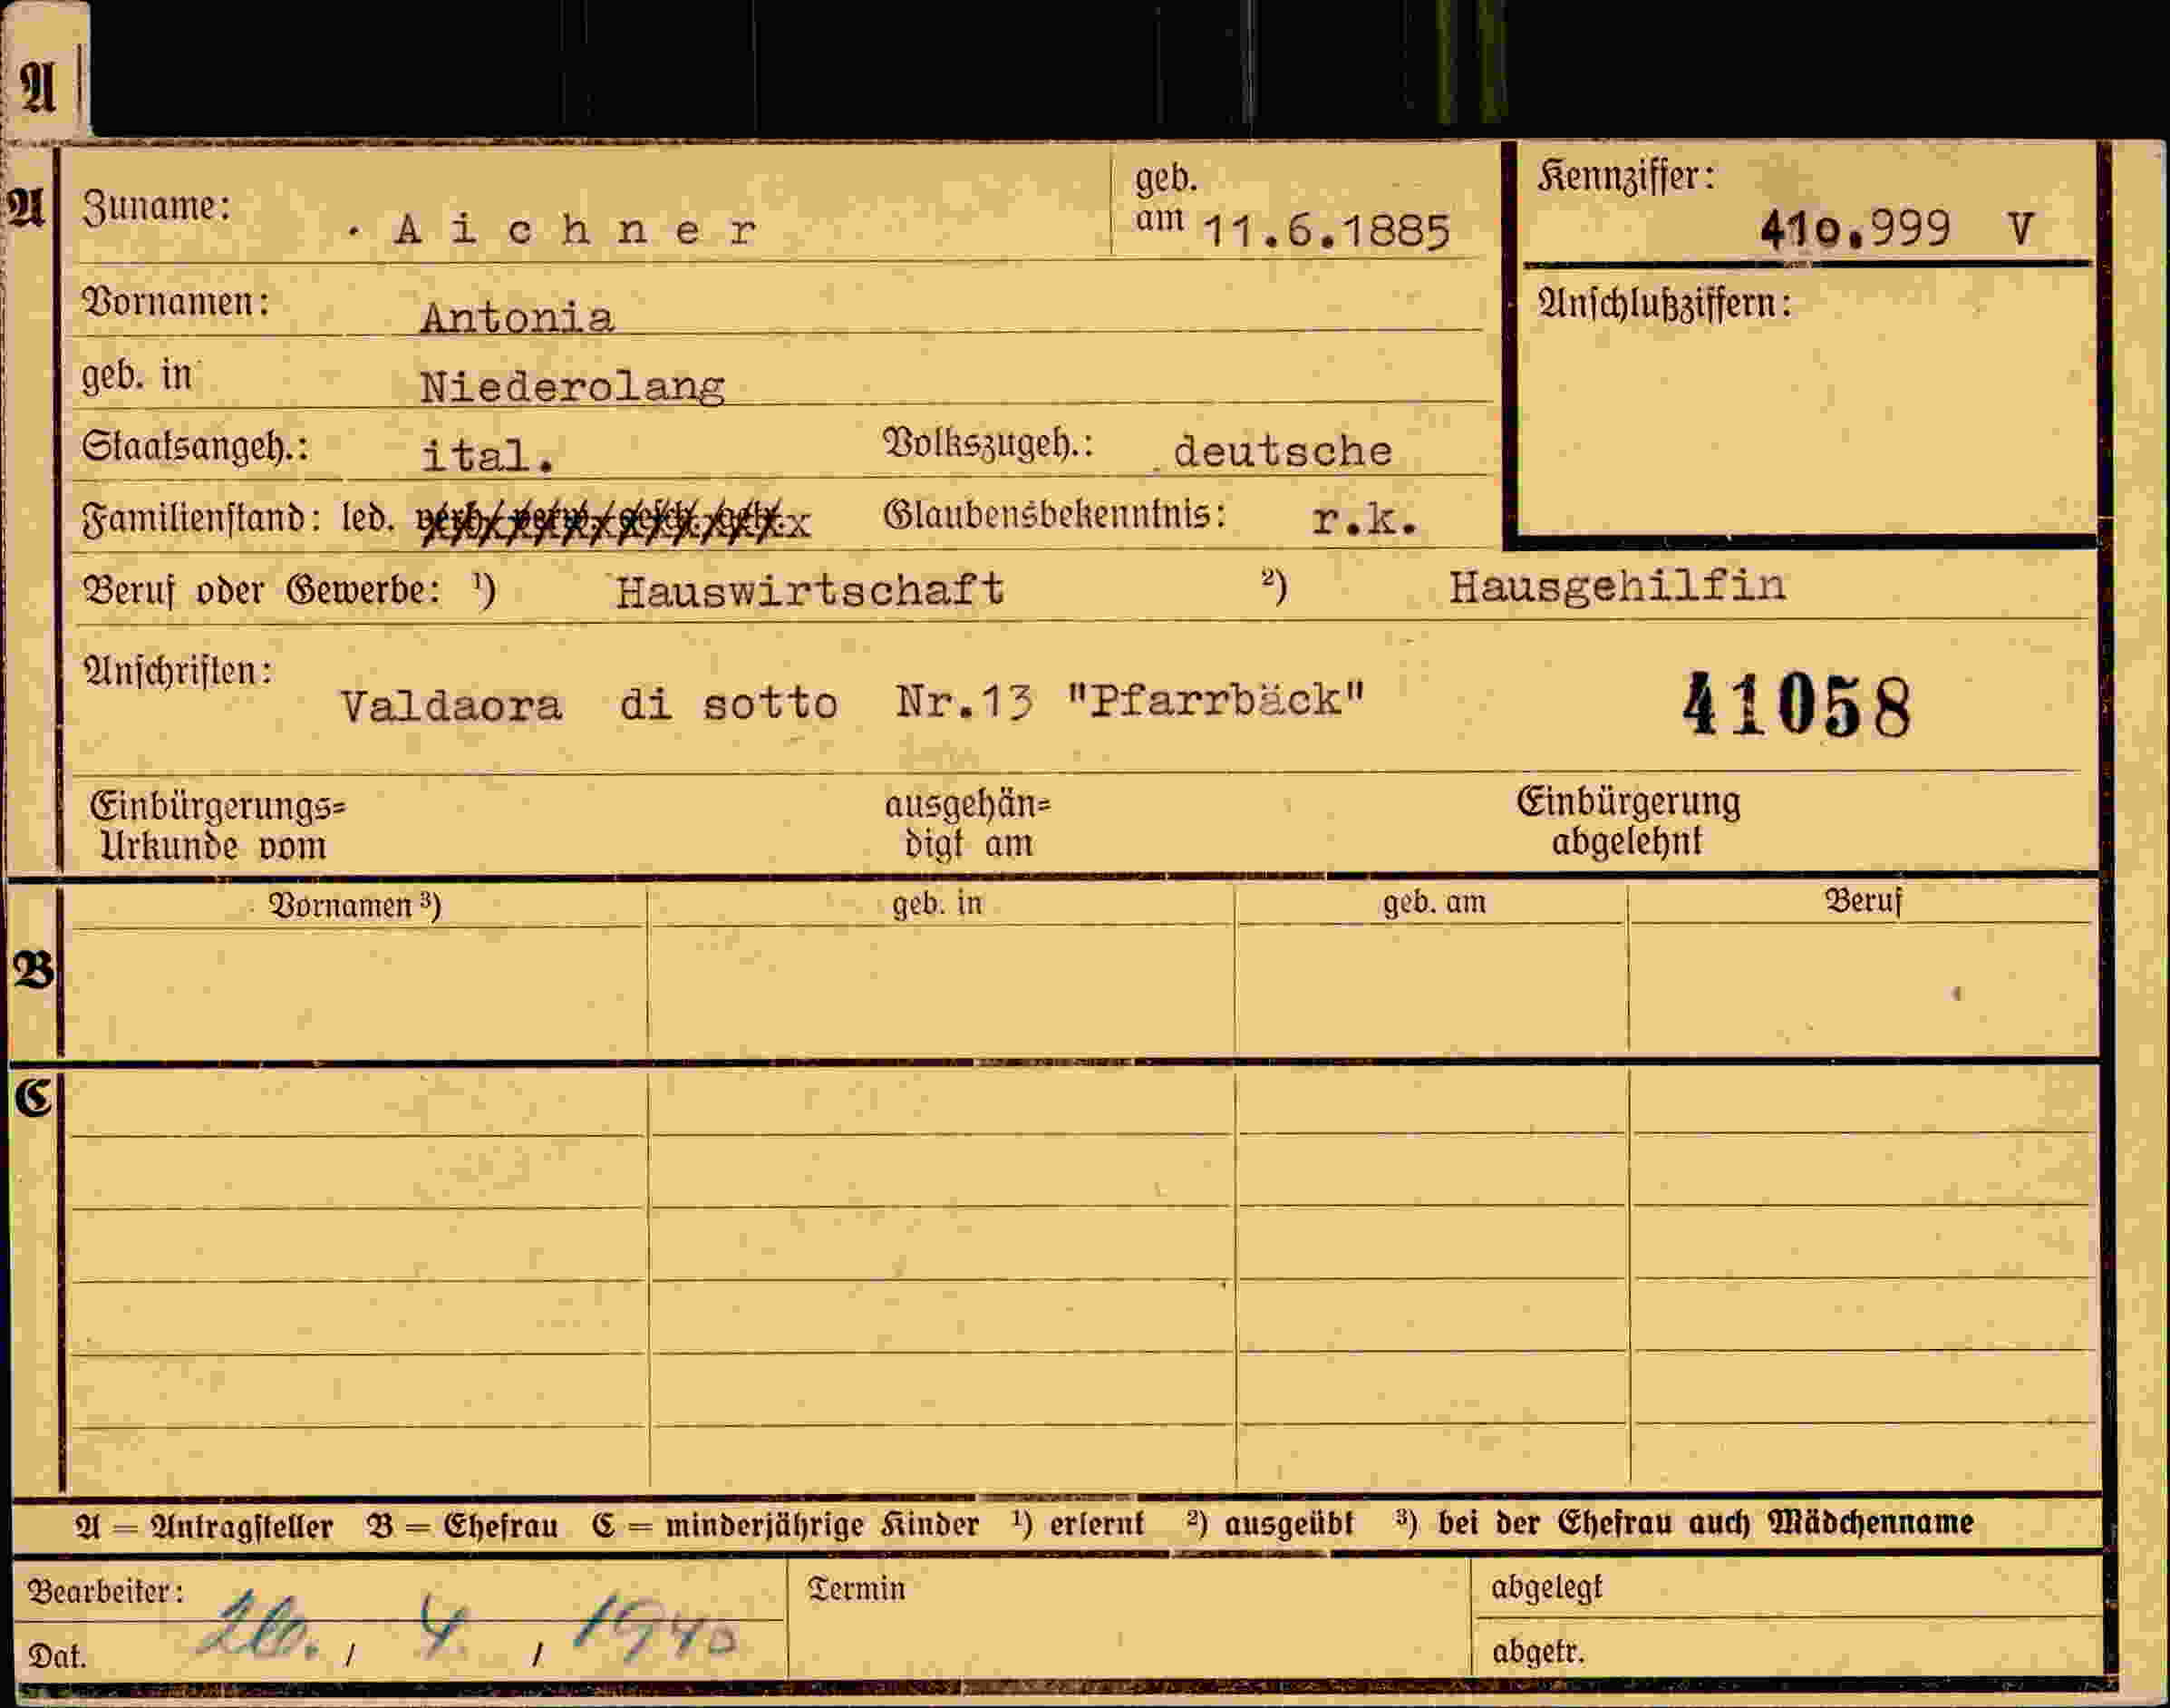 A
A
Zuname: . Aichner geb. am 11.6.1885 Kennziffer: 410.999 V
Vornamen: Antonia Anschlußziffern:
geb. in Niederolang
Staatsangeh.: ital. Volkszugeh.: deutsche
Familienstand: led. verh. verw. gesch. get. x Glaubensbekenntnis: r.k.
Beruf oder Gewerbe: ¹) Hauswirtschaft ²) Hausgehilfin
Anschriften: Valdaora di sotto Nr.13 "Pfarrbäck" 41058
Einbürgerungs= ausgehän= Einbürgerung
Urkunde vom digt am abgelehnt
Vornamen ³) geb. in geb. am Beruf
B
C
A = Antragsteller B = Ehefrau C = minderjährige Kinder ¹) erlernt ²) ausgeübt ³) bei der Ehefrau auch Mädchenname
Bearbeiter: Termin abgelegt
Dat. / 4. / 1940 abgetr.